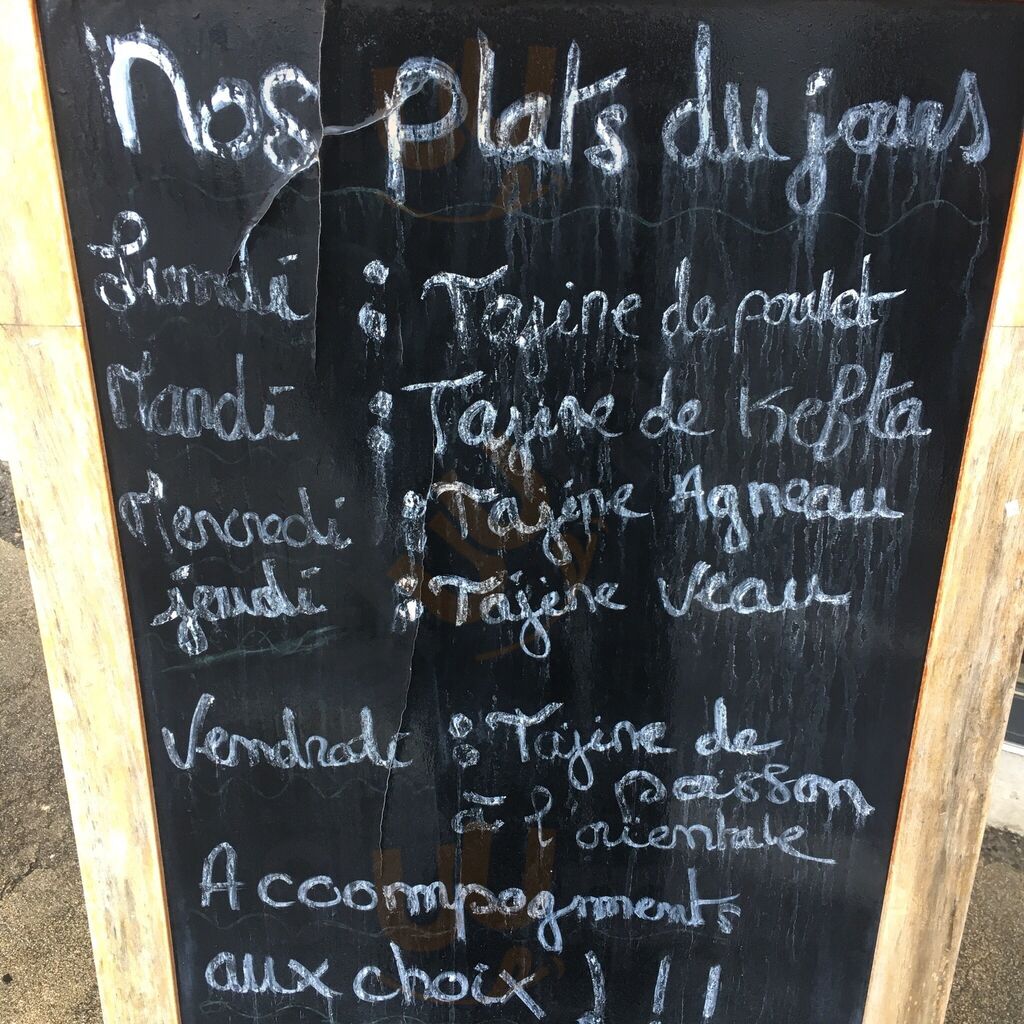 Nos plats du jours
Lundi : Tajine de poulet
Mardi : Tajine de Kefta
Mercredi : Tajine Agneau
jeudi : Tajine Veau
Vendradi : Tajine de
poisson
à l'orientale
Acoompagnments
aux choix ! ! !